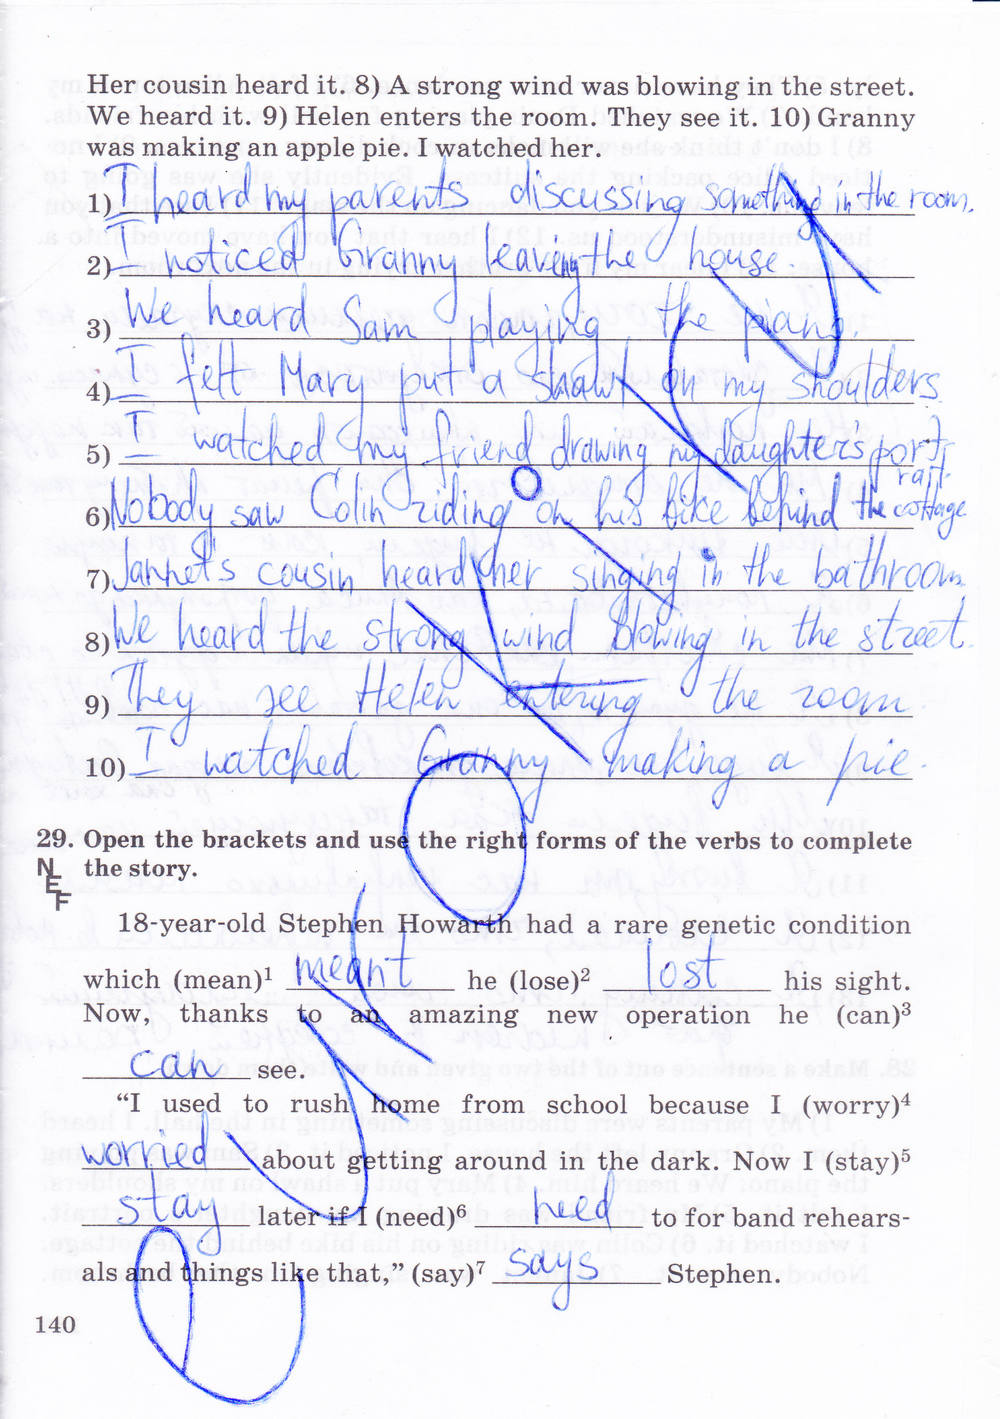 Her cousin heard it. 8) A strong wind was blowing in the street.
We heard it. 9) Helen enters the room. They see it. 10) Granny
was making an apple pie. I watched her.
1) I heard my parents discussing something in the room.
2) I noticed Granny leaving the house.
3) We heard Sam playing the piano.
4) I felt Mary put a shawl on my shoulders
5) I watched my friend drawing my daughters port-
rait.
6) Nobody saw Colin riding on his bike behind the cottage
7) Jannet's cousin heard her singing in the bathroom.
8) We heard the strong wind blowing in the street.
9) They see Helen entering the room.
10) I watched Granny making a pie.
29. Open the brackets and use the right forms of the verbs to complete
NEF the story.
18-year-old Stephen Howarth had a rare genetic condition
which (mean)1 meant he (lose)2 lost his sight.
Now, thanks to an amazing new operation he (can)3
can see.
"I used to rush home from school because I (worry)4
worried about getting around in the dark. Now I (stay)5
stay later if I (need)6 need to for band rehears-
als and things like that," (say)7 says Stephen.
140